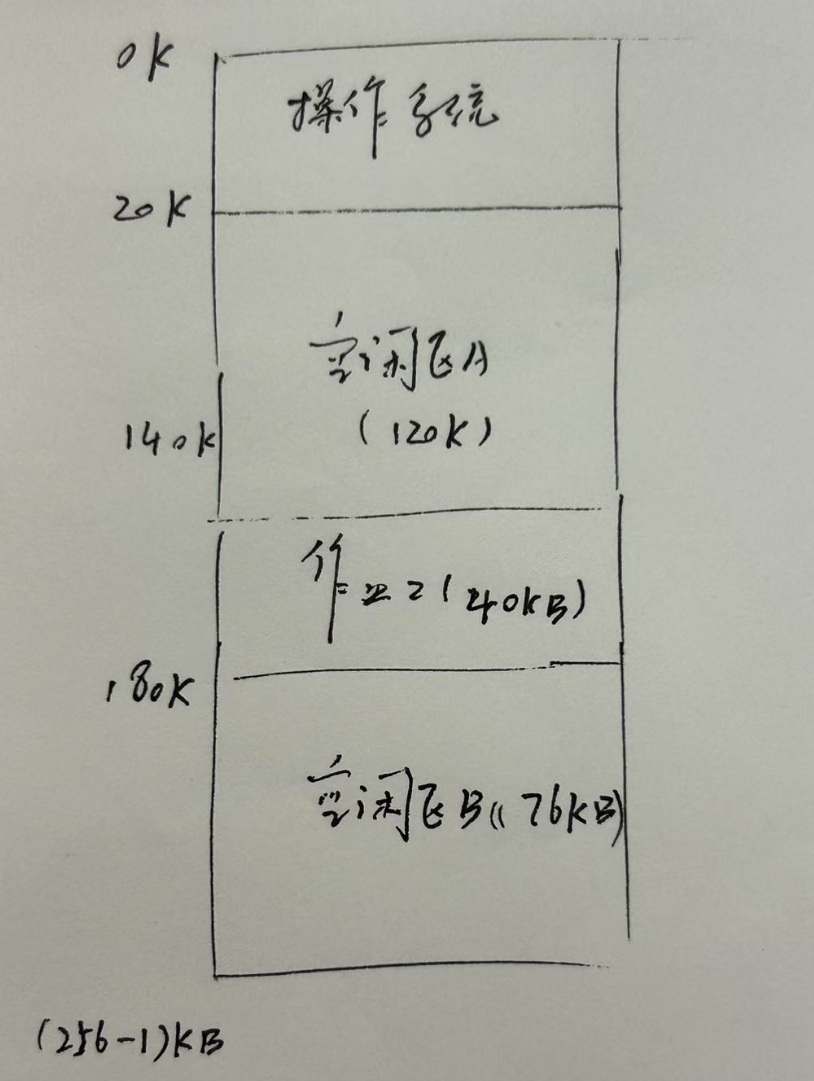 0K
操作系统
20K
空闲区A
140K
(120K)
作业2(40KB)
180K
空闲区B((76KB)
(256-1)KB